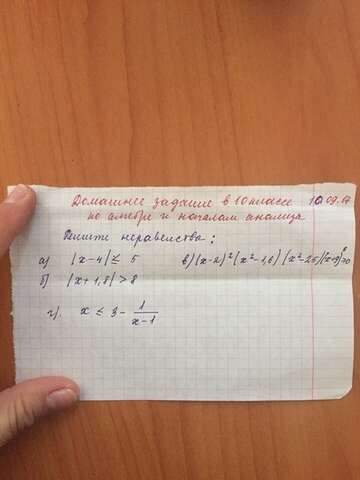 Домашнее задание в 10 классе 10.09.17
по алгебре и началам анализа
Решите неравенства:
а) |x-4| ≤ 5 в) (x-2)² (x²-1,6) (x²-25)
б) |x+1,8| > 8
г). x ≤ 3 - 1/(x-1)